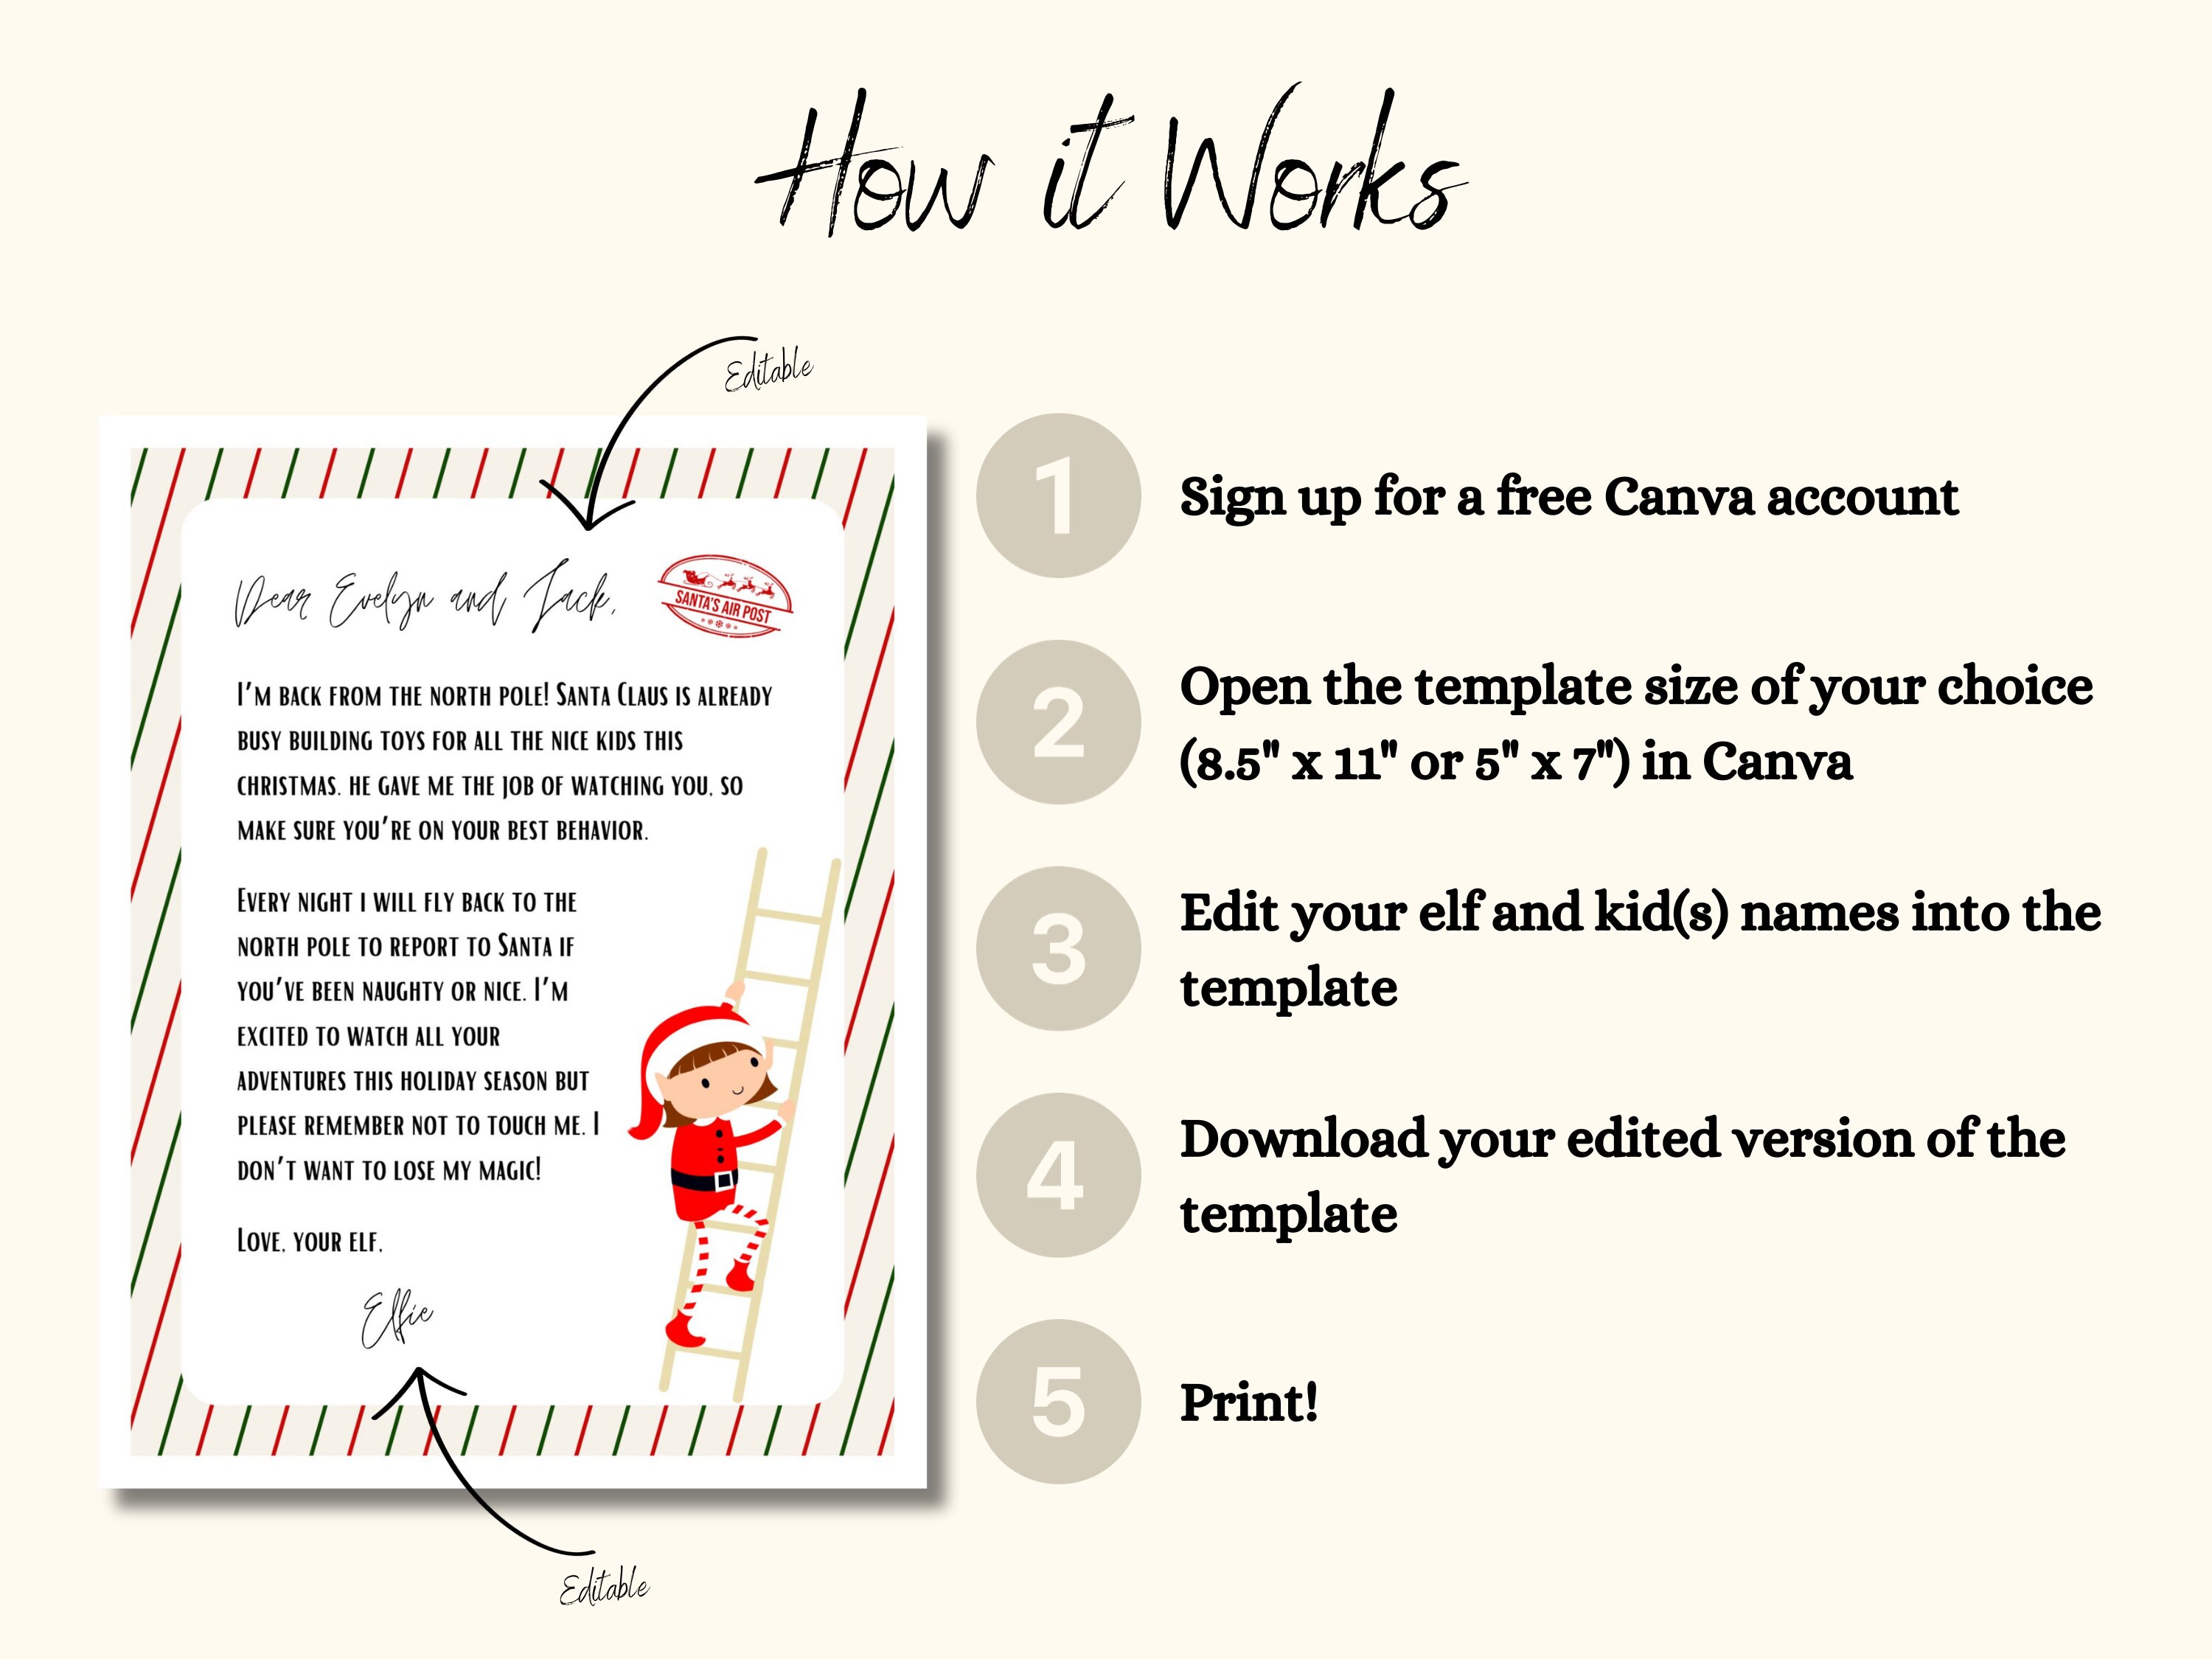 How it Works
Editable
Dear Evelyn and Jack,
SANTA'S AIR POST
I'M BACK FROM THE NORTH POLE! SANTA CLAUS IS ALREADY
BUSY BUILDING TOYS FOR ALL THE NICE KIDS THIS
CHRISTMAS. HE GAVE ME THE JOB OF WATCHING YOU, SO
MAKE SURE YOU'RE ON YOUR BEST BEHAVIOR.
EVERY NIGHT I WILL FLY BACK TO THE
NORTH POLE TO REPORT TO SANTA IF
YOU'VE BEEN NAUGHTY OR NICE. I'M
EXCITED TO WATCH ALL YOUR
ADVENTURES THIS HOLIDAY SEASON BUT
PLEASE REMEMBER NOT TO TOUCH ME. I
DON'T WANT TO LOSE MY MAGIC!
LOVE, YOUR ELF,
Elfie
Editable
1
Sign up for a free Canva account
2
Open the template size of your choice
(8.5" x 11" or 5" x 7") in Canva
3
Edit your elf and kid(s) names into the
template
4
Download your edited version of the
template
5
Print!